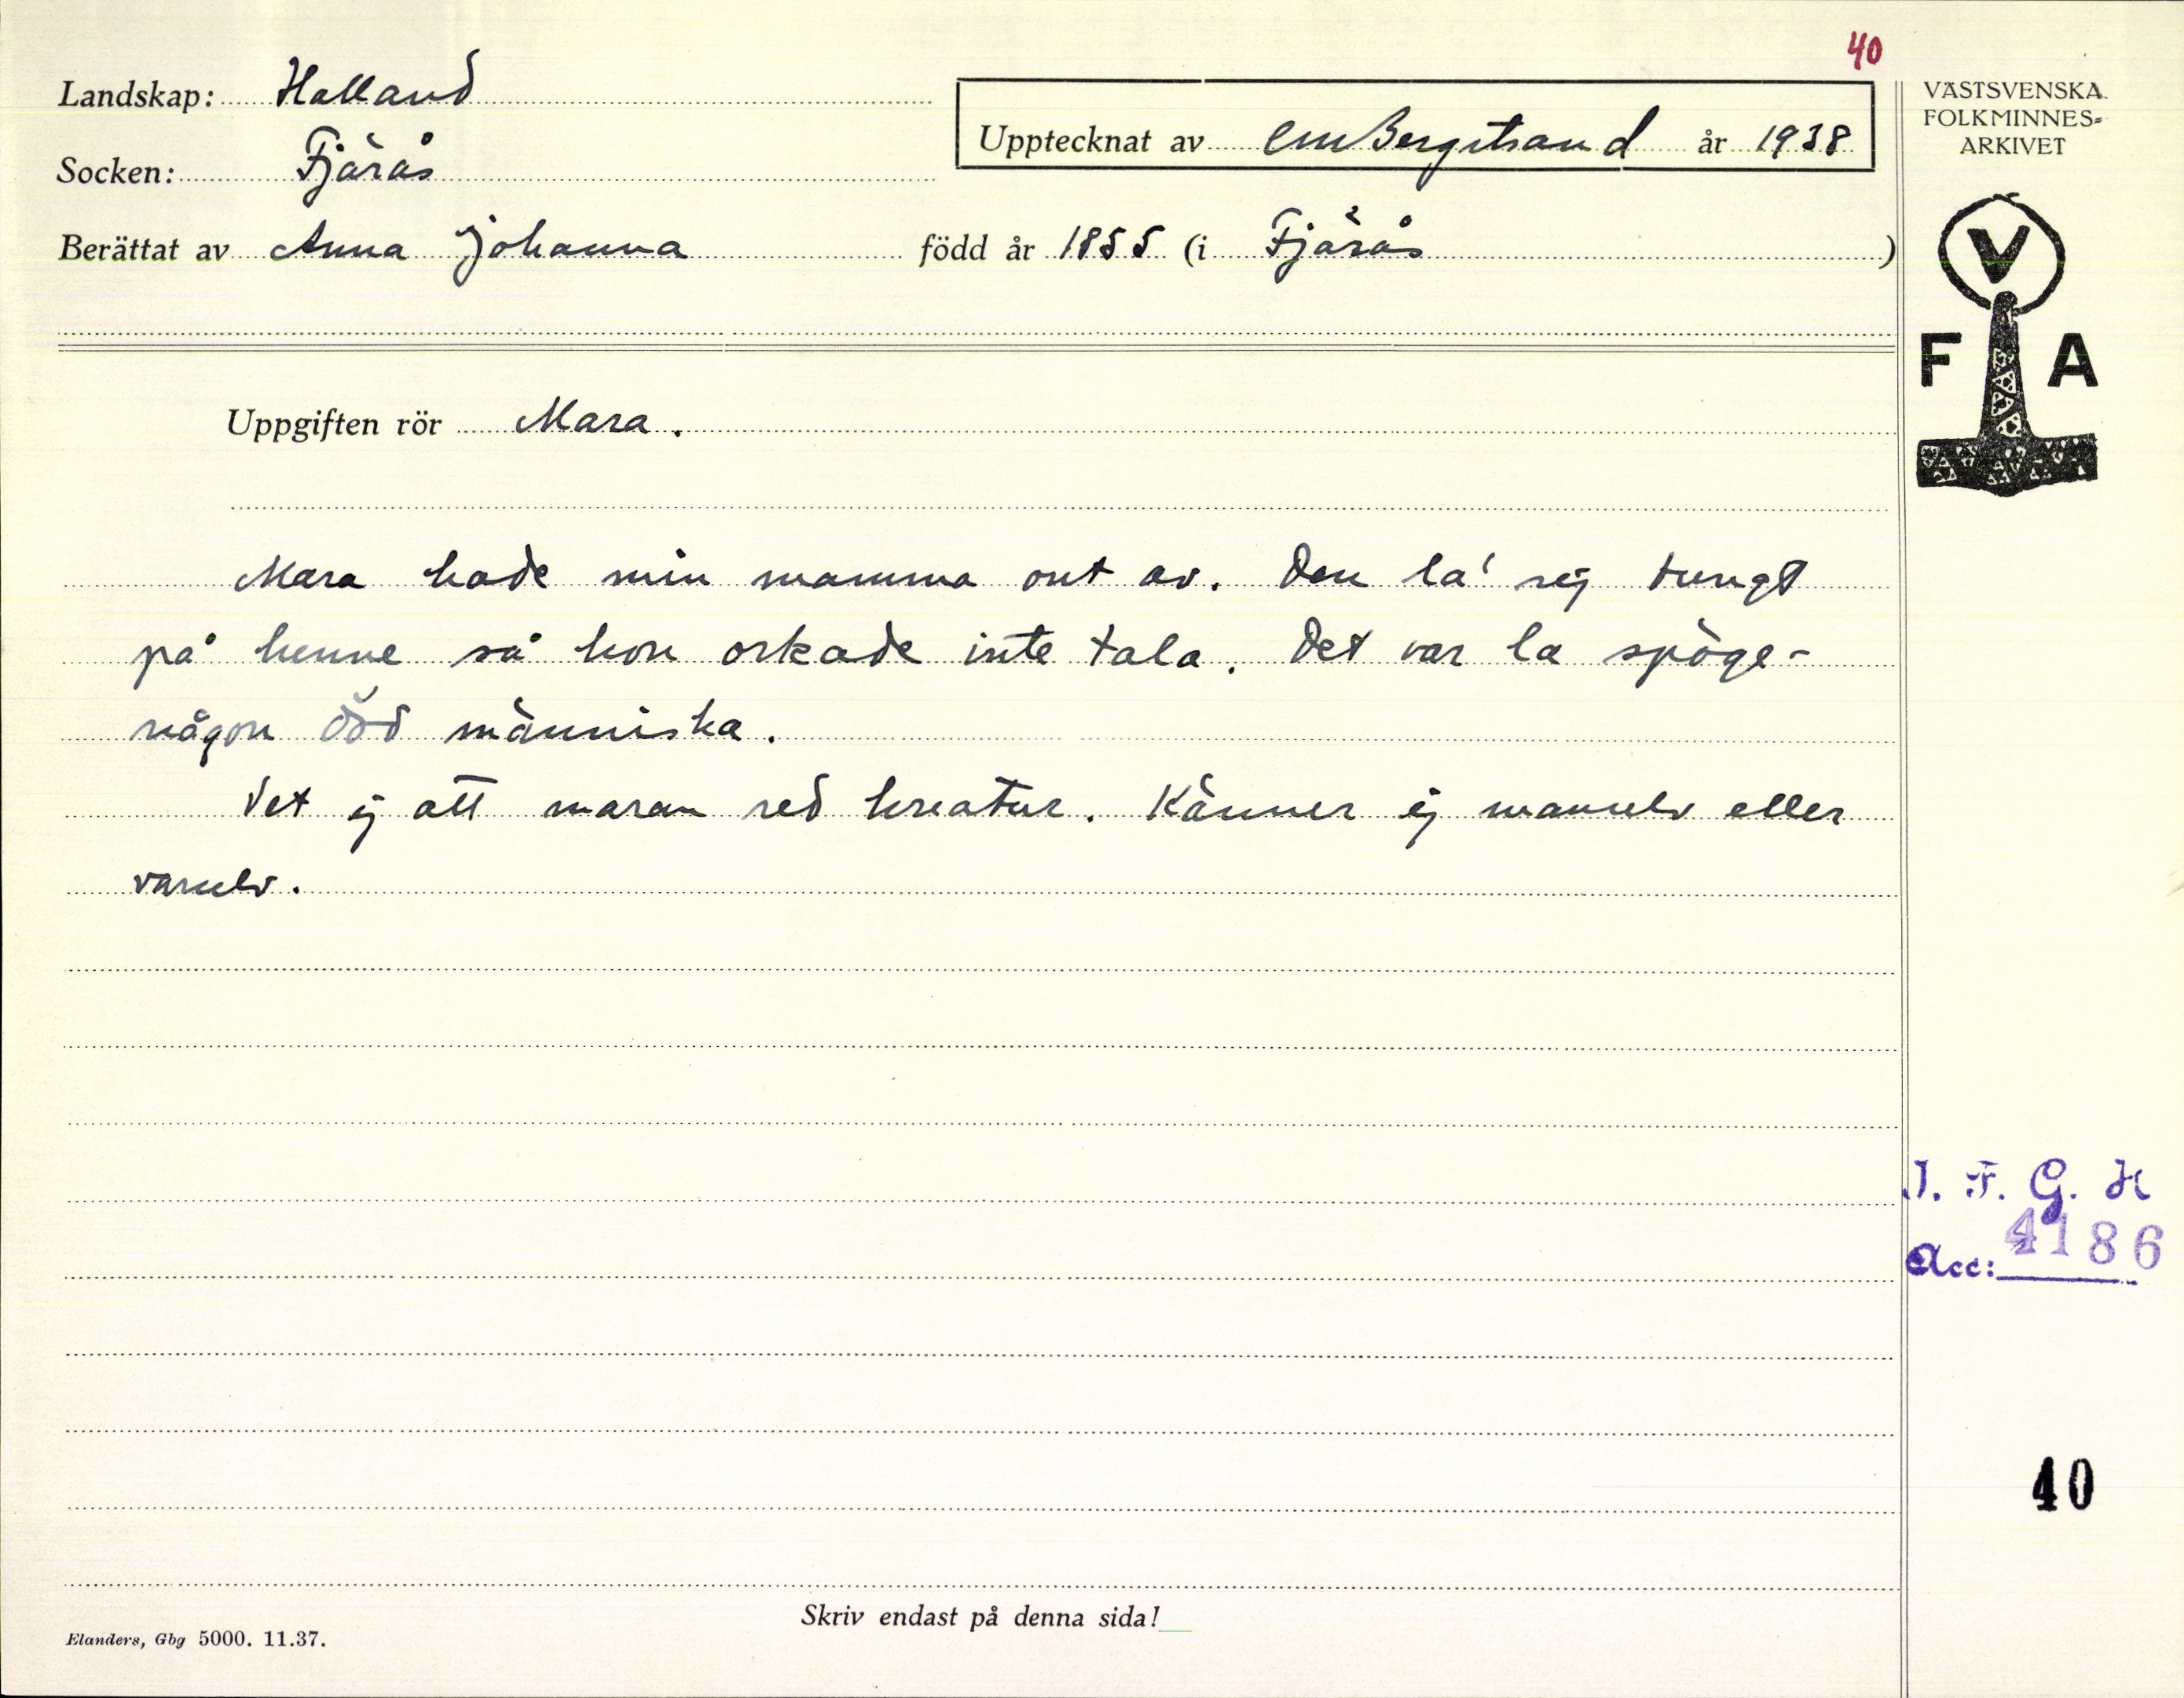 40
Landskap: Halland
Upptecknat av CMBergstrand år 1938
Socken: Fjärås
Berättat av Anna Johanna född år 1855 (i Fjärås)
VÄSTSVENSKA
FOLKMINNES=
ARKIVET
V
F A
Uppgiften rör Mara.
Mara hade min mamma ont av. Den la' sig tungt
på henne så hon orkade inte tala. Det var la spöge-
någon människa.
Vet ej att maran red kreatur. Känner ej marulv eller
varulv.
I. F. G. H
Acc: 4186
40
Skriv endast på denna sida!
Elanders, Gbg 5000. 11.37.